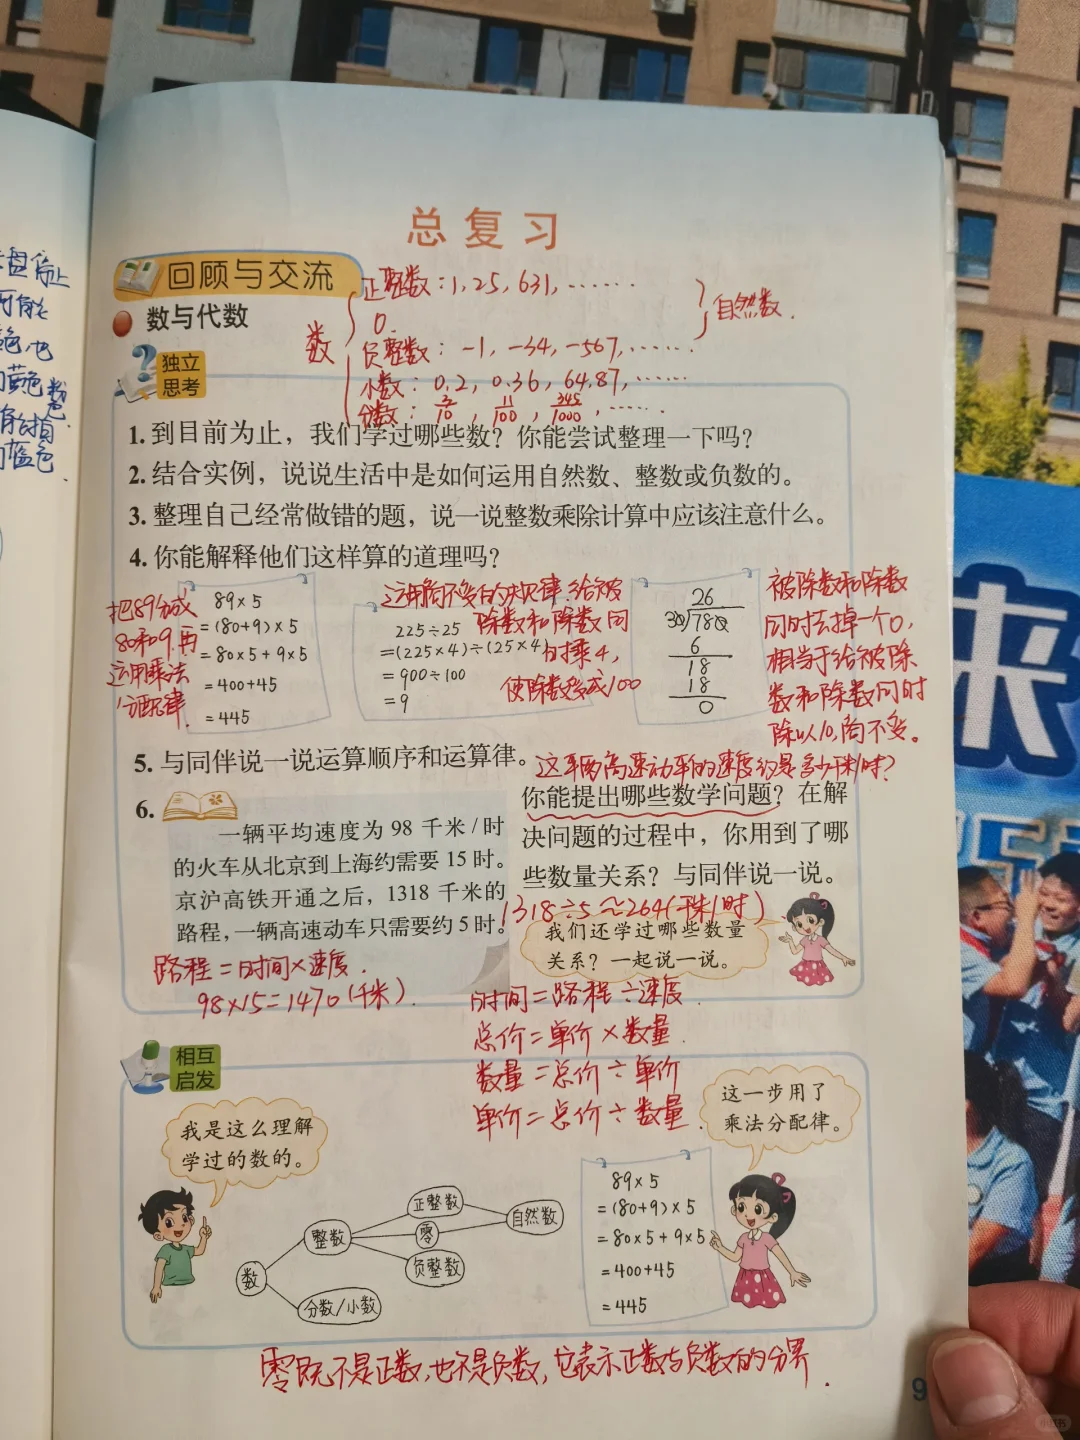 总复习
回顾与交流
正整数：1，25，631，……
自然数.
数与代数
数
0.
负整数：-1，-34，-567，……
独立
思考
小数：0.2，0.36，64.87，……
分数：3/10，11/100，345/1000，……
1. 到目前为止，我们学过哪些数？你能尝试整理一下吗？
2. 结合实例，说说生活中是如何运用自然数、整数或负数的。
3. 整理自己经常做错的题，说一说整数乘除计算中应该注意什么。
4. 你能解释他们这样算的道理吗？
把89分成
80和9.再
运用乘法
分配律.
89×5
=(80+9)×5
=80×5+9×5
=400+45
=445
运用商不变的规律.给被
除数和除数同
时乘4，
使除数变成100
225÷25
=(225×4)÷(25×4)
=900÷100
=9
26
30)780
6
18
18
0
被除数和除数
同时去掉一个0，
相当于给被除
数和除数同时
除以10，商不变。
5. 与同伴说一说运算顺序和运算律。
这辆高速动车的速度约是多少千米/时？
6.
一辆平均速度为 98 千米/时
的火车从北京到上海约需要 15 时。
京沪高铁开通之后，1318 千米的
路程，一辆高速动车只需要约 5 时。
路程=时间×速度.
98×15=1470(千米).
你能提出哪些数学问题？在解
决问题的过程中，你用到了哪
些数量关系？与同伴说一说。
1318÷5≈264(千米/时)
我们还学过哪些数量
关系？一起说一说。
时间=路程÷速度.
总价=单价×数量.
数量=总价÷单价
单价=总价÷数量.
相互
启发
我是这么理解
学过的数的。
数
整数
分数/小数
正整数
零
负整数
自然数
这一步用了
乘法分配律。
89×5
=(80+9)×5
=80×5+9×5
=400+45
=445
零既不是正数,也不是负数,它表示正数与负数的分界.
9
来